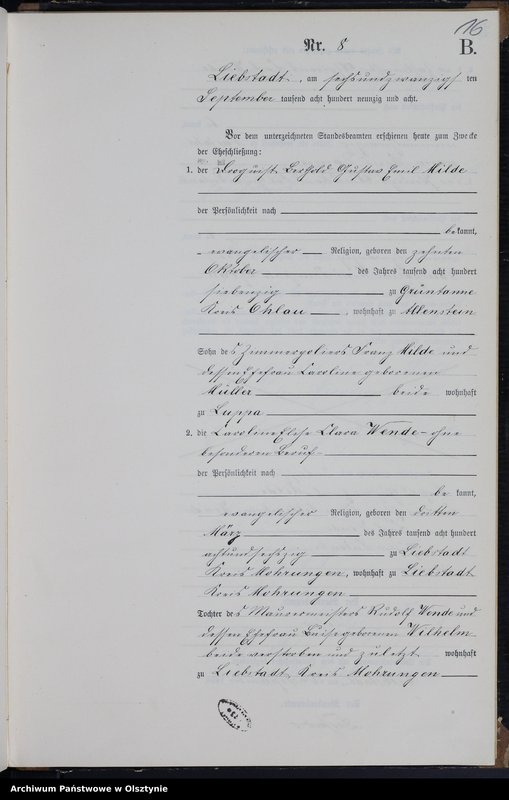 16
Nr. 8
B.
Liebstadt, am sechsundzwanzigsten
September tausend acht hundert neunzig und acht.
Vor dem unterzeichneten Standesbeamten erschienen heute zum Zwecke
der Eheschließung:
1. der Drogist Berthold Gustav Emil Milde
der Persönlichkeit nach
bekannt,
evangelischer Religion, geboren den zehnten
Oktober des Jahres tausend acht hundert
siebenzig zu Grüntanne
Kreis Ohlau, wohnhaft zu Allenstein
Sohn des Zimmerpoliers Franz Milde und
dessen Ehefrau Karoline geborenen
Müller beide wohnhaft
zu Luppa
2. die Caroline Clara Wende - ohne
besonderen Beruf -
der Persönlichkeit nach
bekannt,
evangelischer Religion, geboren den dritten
März des Jahres tausend acht hundert
achtundsechszig zu Liebstadt
Kreis Mohrungen, wohnhaft zu Liebstadt
Kreis Mohrungen
Tochter des Maurermeisters Rudolf Wende und
dessen Ehefrau Luise geborenen Wilhelm
beide verstorben und zuletzt wohnhaft
zu Liebstadt, Kreis Mohrungen
Archiwum Państwowe w Olsztynie